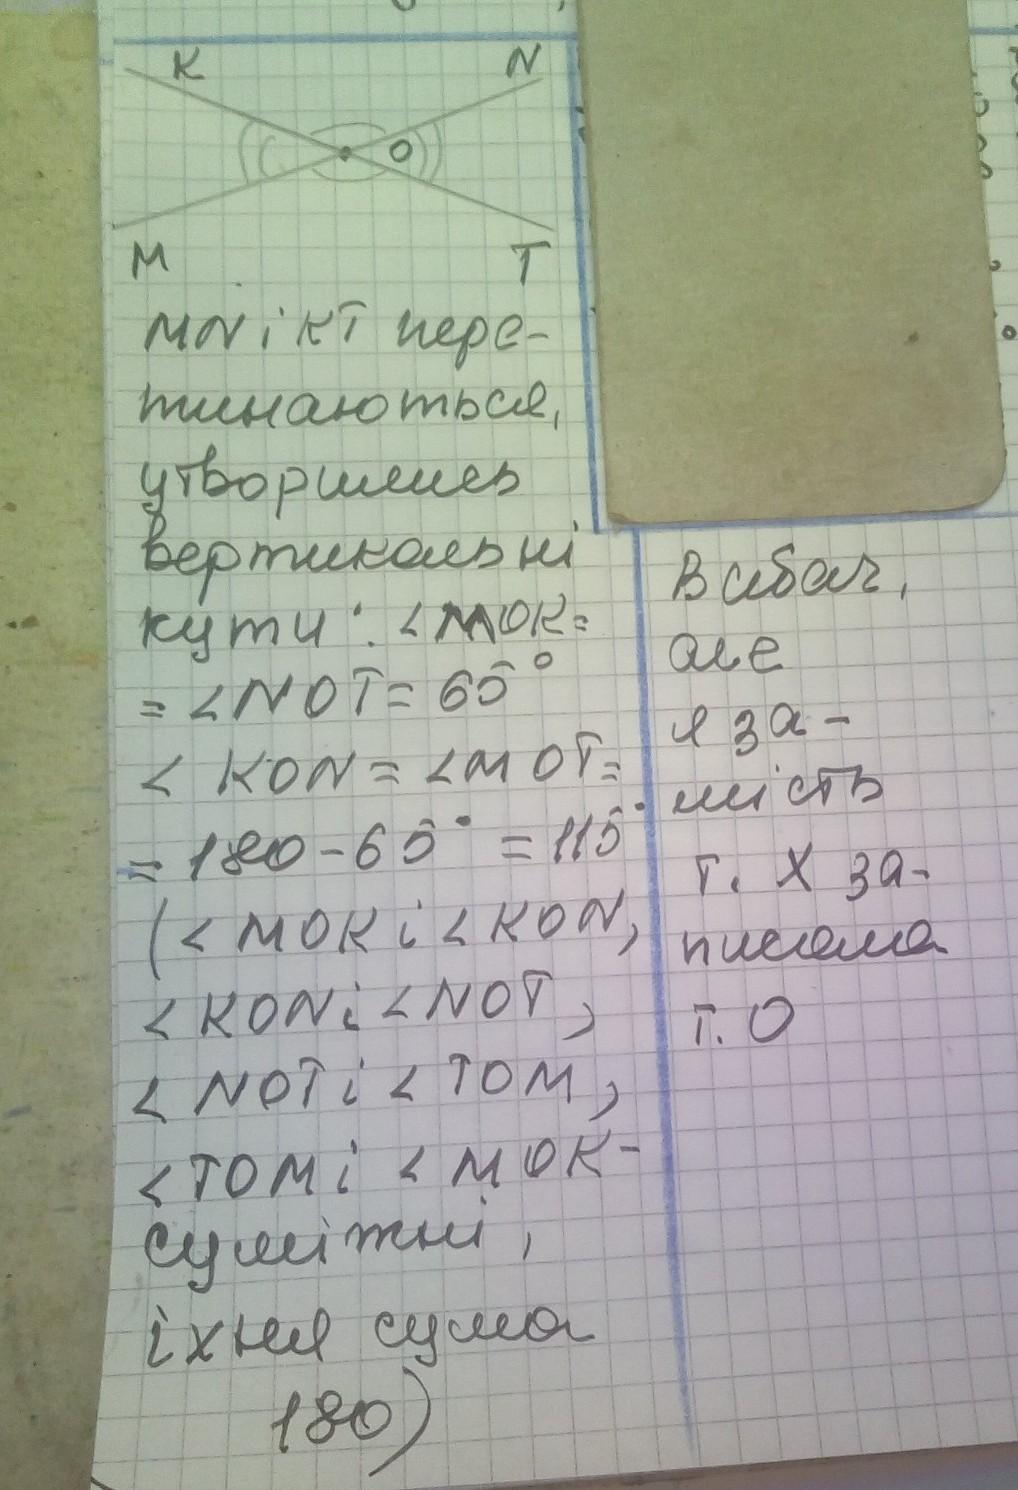 K N
O
M T
MN і KT пере-
тинаються,
утворились
вертикальні
кути: <MOK=
= <NOT= 65°
< KON = <MOT=
= 180 - 65° = 115°
(<MOK і <KON,
< KON і <NOT,
< NOT і < TOM,
<TOM і < MOK -
суміжні,
їхня сума
180)
Вибач,
але
я за-
мість
т. X за-
писала
т. O